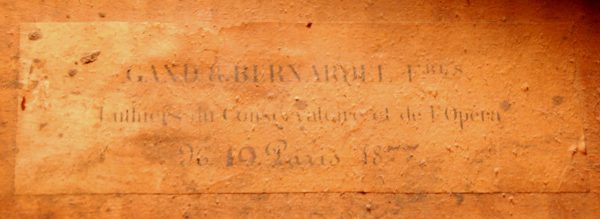 GAND & BERNARDEL FRES
Luthiers du Conservatoire et de l'Opéra
No. Paris 18